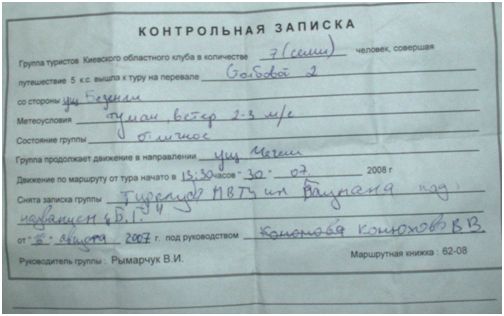 КОНТРОЛЬНАЯ ЗАПИСКА
Группа туристов Киевского областного клуба в количестве 7 (семи) человек, совершая
путешествие 5 к.с. вышла к туру на перевале 2
со стороны ущ Безенги
Метеоусловия туман, ветер 2-3 м/с
Состояние группы отличное
Группа продолжает движение в направлении ущ Чегем
Движение по маршруту от тура начато в 13:30 часов "30" 07 2008 г
Снята записка группы Турклуб МВТУ им Баумана под
названием
от августа 2007 г. под руководством Кононова Конюхова В В
Руководитель группы : Рымарчук В.И. Маршрутная книжка : 62-08